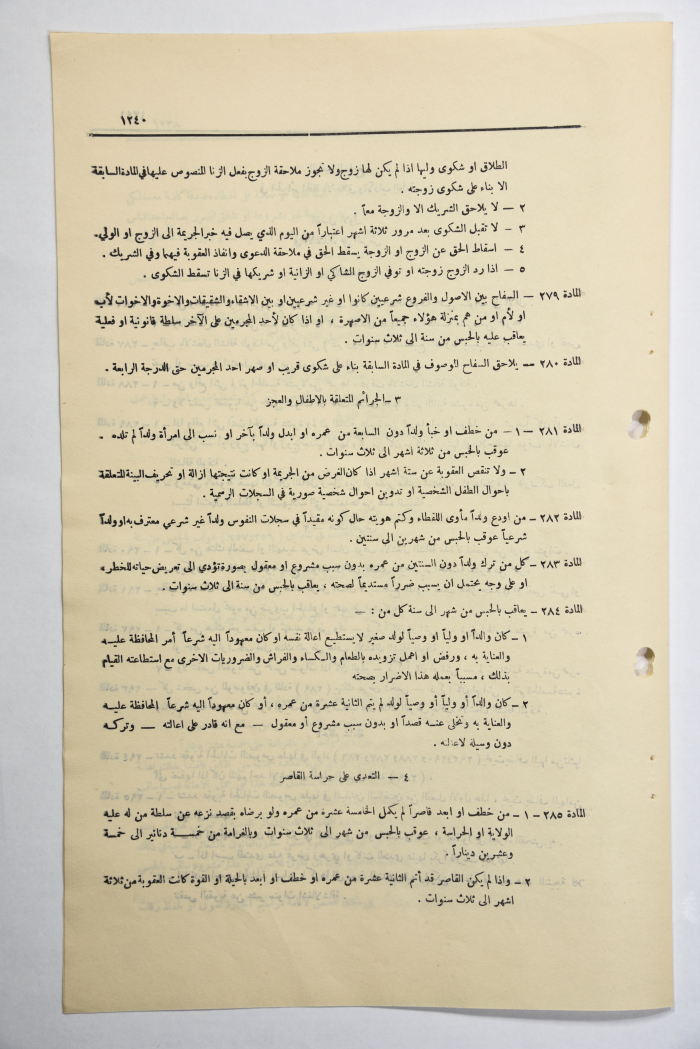 ١٢٤٠
الطلاق او شكوى وليها اذا لم يكن لها زوج ولا تجوز ملاحقة الزوج بفعل الزنا المنصوص عليها في المادة السابقة
الا بناء على شكوى زوجته .
٢ — لا يلاحق الشريك الا والزوجة معاً .
٣ — لا تقبل الشكوى بعد مرور ثلاثة اشهر اعتباراً من اليوم الذي يصل فيه خبر الجريمة الى الزوج او الولي.
٤ — اسقاط الحق عن الزوج او الزوجة يسقط الحق في ملاحقة الدعوى وانفاذ العقوبة فيهما وفي الشريك .
٥ — اذا رد الزوج زوجته او توفي الزوج الشاكي او الزانية او شريكها في الزنا تسقط الشكوى .
المادة ٢٧٩ — السفاح بين الاصول والفروع شرعيين كانوا او غير شرعيين او بين الاشقاء والشقيقات والاخوة والاخوات لأب
او لأم او من هم بمنزلة هؤلاء جميعاً من الاصهرة ، او اذا كان لأحد المجرمين على الآخر سلطة قانونية او فعلية
يعاقب عليه بالحبس من سنة الى ثلاث سنوات .
المادة ٢٨٠ — يلاحق السفاح الموصوف في المادة السابقة بناء على شكوى قريب او صهر احد المجرمين حتى الدرجة الرابعة .
٣ – الجرائم المتعلقة بالاطفال والعجز
المادة ٢٨١ — ١ – من خطف او خبأ ولداً دون السابعة من عمره او ابدل ولداً بآخر او نسب الى امرأة ولداً لم تلده .
عوقب بالحبس من ثلاثة اشهر الى ثلاث سنوات .
٢ – ولا تنقص العقوبة عن ستة اشهر اذا كان الغرض من الجريمة او كانت نتيجتها ازالة او تحريف البينة المتعلقة
باحوال الطفل الشخصية او تدوين احوال شخصية صورية في السجلات الرسمية .
المادة ٢٨٢ – من اودع ولداً مأوى اللقطاء وكتم هويته حال كونه مقيداً في سجلات النفوس ولداً غير شرعي معترف به او ولداً
شرعياً عوقب بالحبس من شهرين الى سنتين .
المادة ٢٨٣ – كل من ترك ولداً دون السنتين من عمره بدون سبب مشروع او معقول بصورة تؤدي الى تعريض حياته للخطر ،
او على وجه يحتمل ان يسبب ضرراً مستديماً لصحته ، يعاقب بالحبس من سنة الى ثلاث سنوات .
المادة ٢٨٤ – يعاقب بالحبس من شهر الى سنة كل من : —
١ – كان والداً او ولياً او وصياً لولد صغير لا يستطيع اعالة نفسه او كان معهوداً اليه شرعاً أمر المحافظة عليه
والعناية به ، ورفض او اهمل تزويده بالطعام والكساء والفراش والضروريات الاخرى مع استطاعته القيام
بذلك ، مسبباً بعمله هذا الاضرار بصحته
٢ – كان والداً أو ولياً أو وصياً لولد لم يتم الثانية عشرة من عمره ، أو كان معهوداً اليه شرعاً المحافظة عليه
والعناية به وتخلى عنه قصداً او بدون سبب مشروع أو معقول — مع انه قادر على اعالته — وتركه
دون وسيلة لاعالته .
٤ — التعدي على حراسة القاصر
المادة ٢٨٥ – ١ – من خطف او ابعد قاصراً لم يكمل الخامسة عشرة من عمره ولو برضاه بقصد نزعه عن سلطة من له عليه
الولاية او الحراسة ، عوقب بالحبس من شهر الى ثلاث سنوات وبالغرامة من خمسة دنانير الى خمسة
وعشرين ديناراً .
٢ – واذا لم يكن القاصر قد أتم الثانية عشرة من عمره او خطف او ابعد بالحيلة او القوة كانت العقوبة من ثلاثة
اشهر الى ثلاث سنوات .